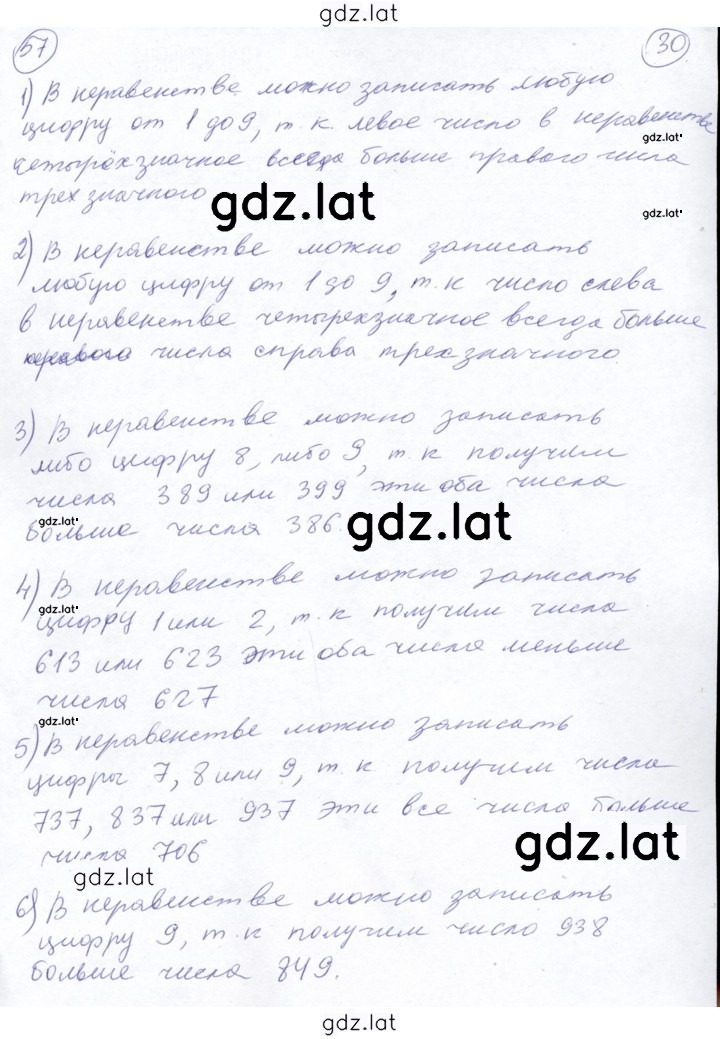 gdz.lat
57
30
1) В неравенстве можно записать любую
цифру от 1 до 9, т.к. левое число в неравенстве
gdz.lat
четырёхзначное всегда больше правого числа
трехзначного
gdz.lat
gdz.lat
2) В неравенстве можно записать
любую цифру от 1 до 9, т.к число слева
в неравенстве четырехзначное всегда больше
числа справа трехзначного.
3) В неравенстве можно записать
либо цифру 8, либо 9, т.к получим
числа 389 или 399 эти оба числа
gdz.lat
больше числа 386.
gdz.lat
4) В неравенстве можно записать
gdz.lat
цифру 1 или 2, т.к получим числа
613 или 623 эти оба числа меньше
числа 627
gdz.lat
5) В неравенстве можно записать
цифры 7, 8 или 9, т.к получим числа
737, 837 или 937 эти все числа больше
gdz.lat
числа 706
gdz.lat
6) В неравенстве можно записать
цифру 9, т.к получим число 938
больше числа 849.
gdz.lat